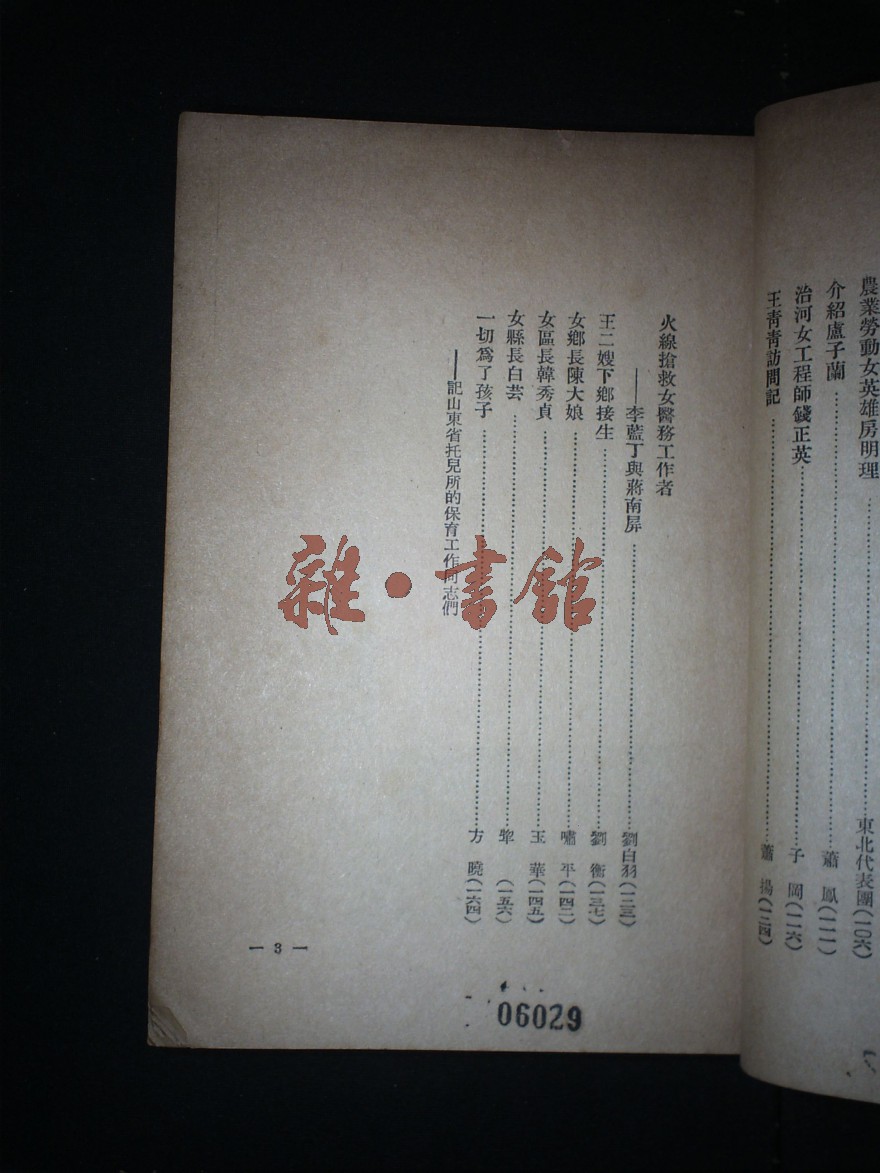 農業勞動女英雄房明理……東北代表團(一〇六)
介紹盧子蘭……蕭 鳳(一一一)
治河女工程師錢正英……子 岡(一一六)
王青青訪問記……蕭 揚(一二四)
火線搶救女醫務工作者
——李藍丁與蔣南屏……劉白羽(一三三)
王二嫂下鄉接生……劉 衡(一三七)
女鄉長陳大娘……嘯 平(一四二)
女區長韓秀貞……玉 華(一四五)
女縣長白芸……犂 (一五六)
一切爲了孩子……方 曉(一六四)
——記山東省托兒所的保育工作同志們
— 3 —
06029
雜·書館